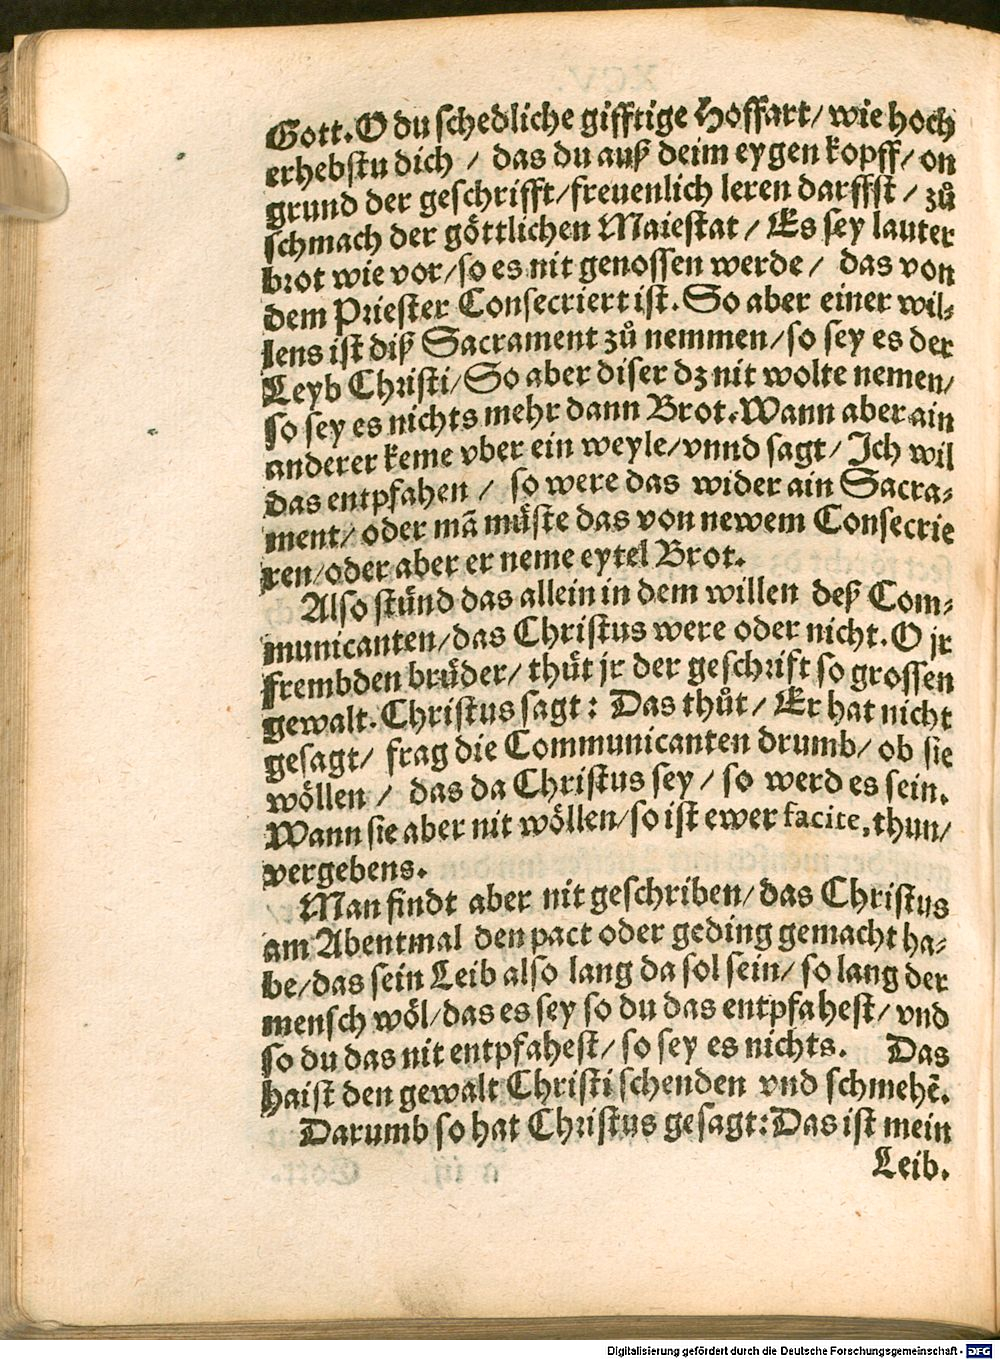 Gott. O du schedliche gifftige Hoffart/ wie hoch
erhebstu dich / das du auß deim eygen kopff/ on
grund der geschrifft/ freuenlich leren darffst / zů
schmach der göttlichen Maiestat / Es sey lauter
brot wie vor/ so es nit genossen werde / das von
dem Priester Consecriert ist. So aber einer wil⸗
lens ist diß Sacrament zů nemmen/ so sey es der
Leyb Christi/ So aber diser dz nit wolte nemen/
so sey es nichts mehr dann Brot. Wann aber ain
anderer keme vber ein weyle/ vnnd sagt/ Ich wil
das entpfahen / so were das wider ain Sacra⸗
ment/ oder mā müste das von newem Consecrie
ren/ oder aber er neme eytel Brot.
Also stünd das allein in dem willen deß Com⸗
municanten/ das Christus were oder nicht. O jr
frembden brüder/ thüt jr der geschrift so grossen
gewalt. Christus sagt : Das thůt/ Er hat nicht
gesagt/ frag die Communicanten drumb/ ob sie
wöllen / das da Christus sey / so werd es sein.
Wann sie aber nit wöllen/ so ist ewer facite, thun/
vergebens.
Man findt aber nit geschriben/ das Christus
am Abentmal den pact oder geding gemacht ha⸗
be/ das sein Leib also lang da sol sein/ so lang der
mensch wöl/ das es sey so du das entpfahest/ vnd
so du das nit entpfahest/ so sey es nichts. Das
haist den gewalt Christi schenden vnd schmehē.
Darumb so hat Christus gesagt: Das ist mein
Leib.
Digitalisierung gefördert durch die Deutsche Forschungsgemeinschaft - DFG